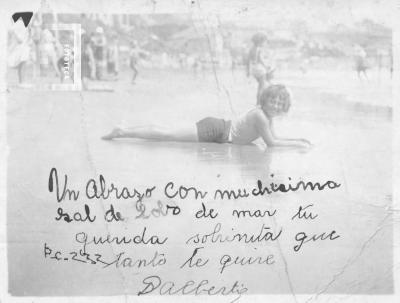 Un Abrazo con muchisima
sal de Lobo de mar tu
querida sobrinita que
tanto te quire
Dalbertiz